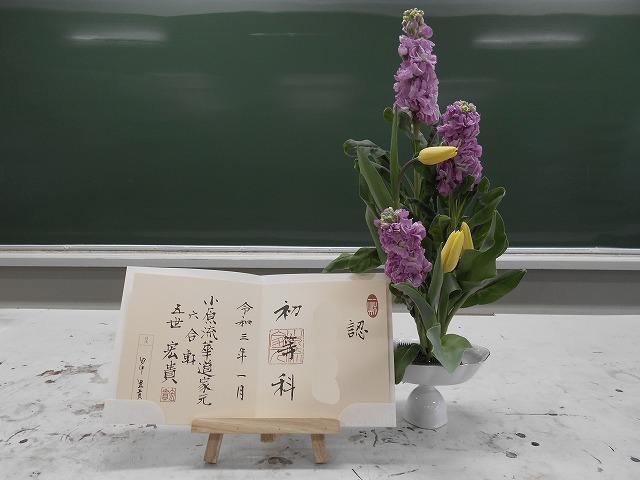 認
初等科
令和三年一月
小原流華道家元
六合軒
五世 宏貴